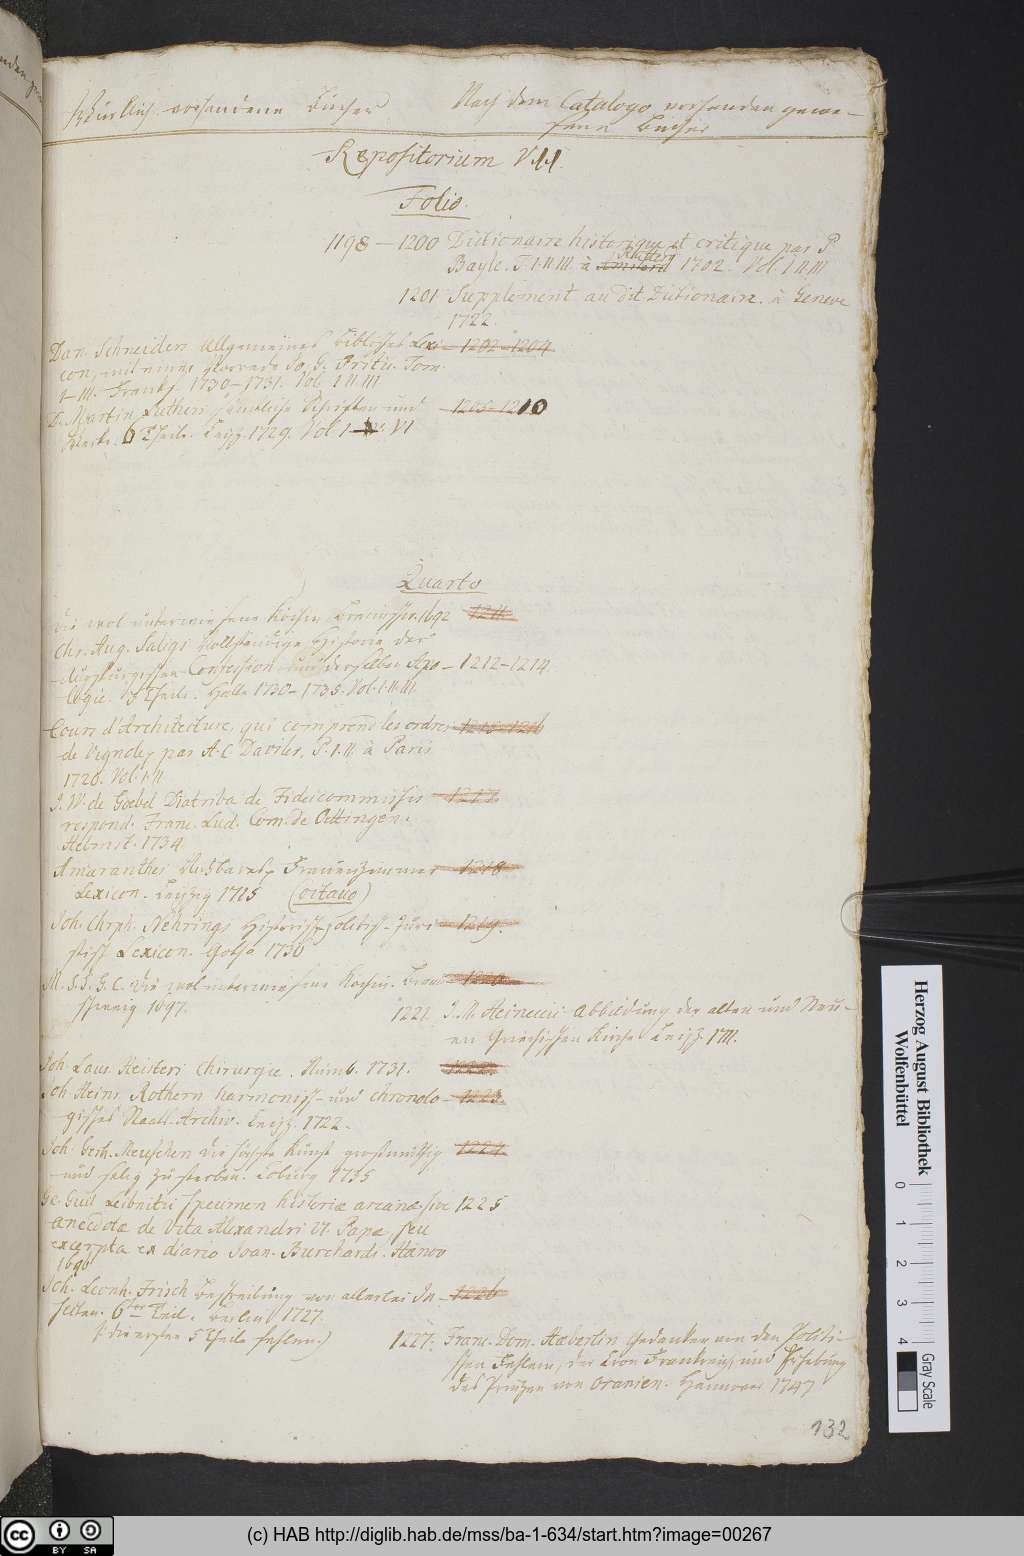 Würklich vorhandene Bücher
Nach dem Catalogo vorhanden gewe-
sene Bücher
Repositorium VII.
Folio.
1198 — 1200 Dictionaire historique et critique par P
Bayle. T. I. II. III. à Rotterd 1702. Vol. I. II. III
1201 Supplement au dit Dictionaire. à Geneve
1722.
Dan. Schneiders Allgemeines biblisches Lexi- 1202-1204
con, mit einer Vorrede Jo. G. Pritii. Tom.
I-III. Franckf. 1730-1731. Vol. I. II. III
D. Martin Lutheri sämtliche Schriften und 1205-1210
Werke. 6 Theile. Leipz. 1729. Vol. I VI
Quarto
Die wol unterwiesene Köchin 1692 1211
Chr. Aug. Saligs Vollständige Historie der
Augspurgischen Confession und derselben Apo- 1212-1214
logie. 3 Theile. Halle 1730-1735. Vol. I. II. III
Cours d'Architecture, qui comprend les ordres 1215-1216
de Vignole, par A. C. Daviler. P. I. II. à Paris
1720. Vol. I. II
J. W. de Goebel Diatriba de Fideicommissis 1217
respond. Franc. Lud. Com. de Oettingen.
Helmst. 1734
Amaranthes Nutzbares Frauenzimmer 1218
Lexicon. Leipzig 1715 (octavo)
Joh. Chrph. Nehrings Historisch-politisch-Juri- 1219.
stisch Lexicon. Gotha 1736
M. S. J. G. C. Die wol unterwiesene Köchin. Braun- 1220
schweig 1697.
1221. J. M. Heineccii Abbildung der alten und Neu-
en Griechischen Kirche Leipz. 1711.
Joh. Laur. Heisters Chirurgie. Nürnb. 1731. 1222.
Joh. Heinr. Rothern harmonisch- und chronolo- 1223.
gisches Archiv. Leipz. 1722.
Joh. Gerh. Meuschen die höchste Kunst grosmüthig 1224
und selig zu sterben. Coburg 1735
Ge. Guil. Leibnitii specimen historiæ arcanæ sive 1225
anecdotæ de vita Alexandri VI. Papæ seu
excerpta ex diario Joan. Burchardi. Hanov
1696
Joh. Leonh. Frisch Beschreibung von allerlei In- 1226
secten. 6ter Theil. Berlin 1727.
(die ersten 5 Theile fehlen)
1227. Franc. Dom. Haeberlin Gedancken von den Politi-
schen Fehlern, der Cron Franckreich und Erhebung
des Printzen von Oranien. Hannover 1747
132
Herzog August Bibliothek
Wolfenbüttel
0 1 2 3 4
Gray Scale
BY SA
(c) HAB http://diglib.hab.de/mss/ba-1-634/start.htm?image=00267